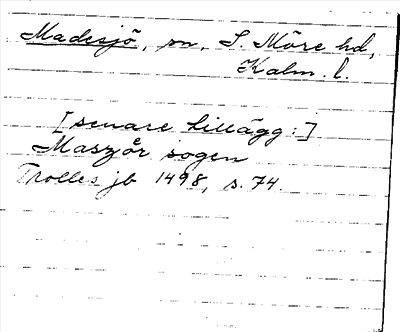 Madesjö, sn, S. Möre hd,
Kalm. l.
[senare tillägg:]
Maször sogen
Trolles jb 1498, s. 74.